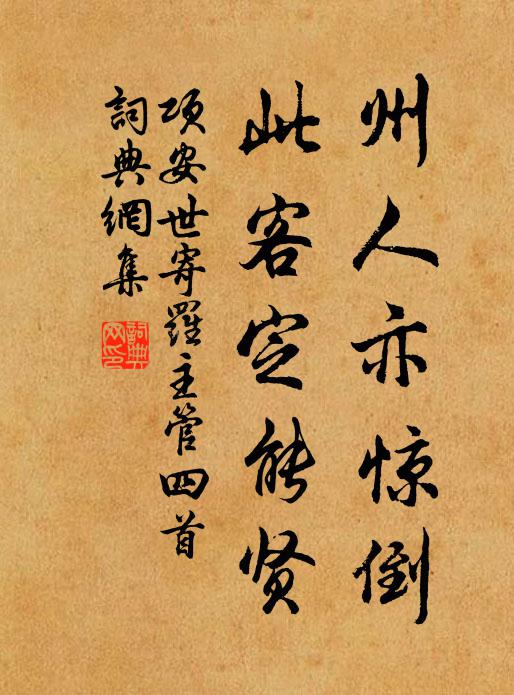 州人亦惊倒
此客定能贤
项安世寄羅主管四首
詞典網集
詞典网印